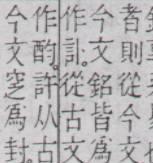 者則從今文
今文銘皆爲
作訃從古文
作酌許从古
今文窆爲封